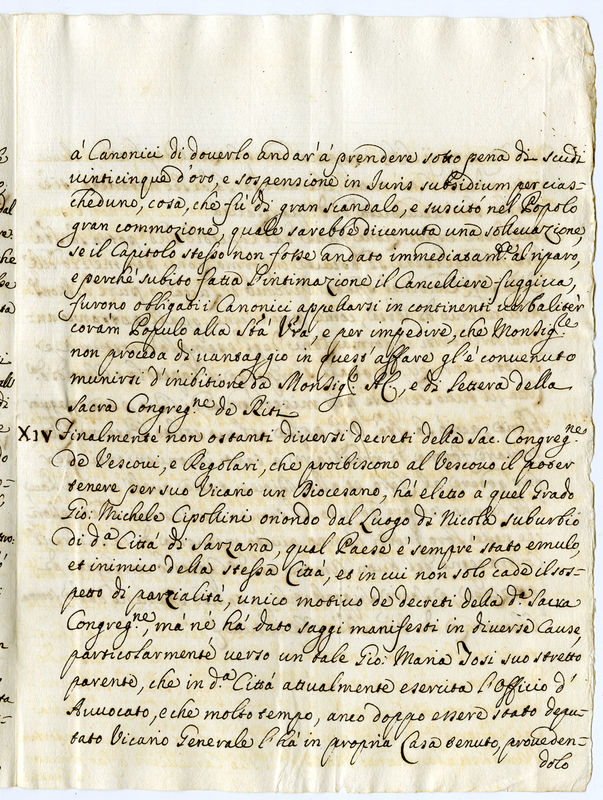 á Canonici di douerlo andar' á prendere sotto pena di scudi
uinticinque d'oro, e sospensione in Iuris subsidium per cias=
cheduno, cosa, che fú di gran scandalo, e suscitó nel Popolo
gran commozione, quale sarebbe diuenuta una solleuazione,
se il Capitolo stesso non fosse andato immediatam.te al riparo,
e perche' subito fatta l'intimazione il Cancelliere fuggiua,
furono obligati i Canonici appellarsi in continenti uerbalitèr
coram Populo alla Stá Vra, e per impedire, che Monsig.le
non proceda di uantaggio in quest'affare gl'é conuenuto
munirsi d'inibitione da Monsig.r AC, e di lettera della
Sacra Congreg.ne de Riti
XIV Finalmente non ostanti diuersi decreti della Sac. Congreg.ne
de Vescoui, e Regolari, che proibiscono al Vescouo il poter
tenere per suo Vicario un Diocesano, há eletto á quel Grado
Gio: Michele Cipollini oriondo dal Luogo di Nicola suburbio
di d.a Cittá di Sarzana, qual Paese é sempre stato emulo,
et inimico della stessa Cittá, et in cui non solo cade il sos=
petto di parzialitá, unico motiuo de decreti della d.a Sacra
Congreg.ne, má né há dato saggi manifesti in diuerse Cause,
particolarmente uerso un tale Gio: Maria Tosi suo stretto
parente, che in d.a Cittá attualmente esercita l'Officio d'
Auuocato, e che molto tempo, anco doppo essere stato depu=
tato Vicario Generale l'há in propria Casa tenuto, proueden=
dolo